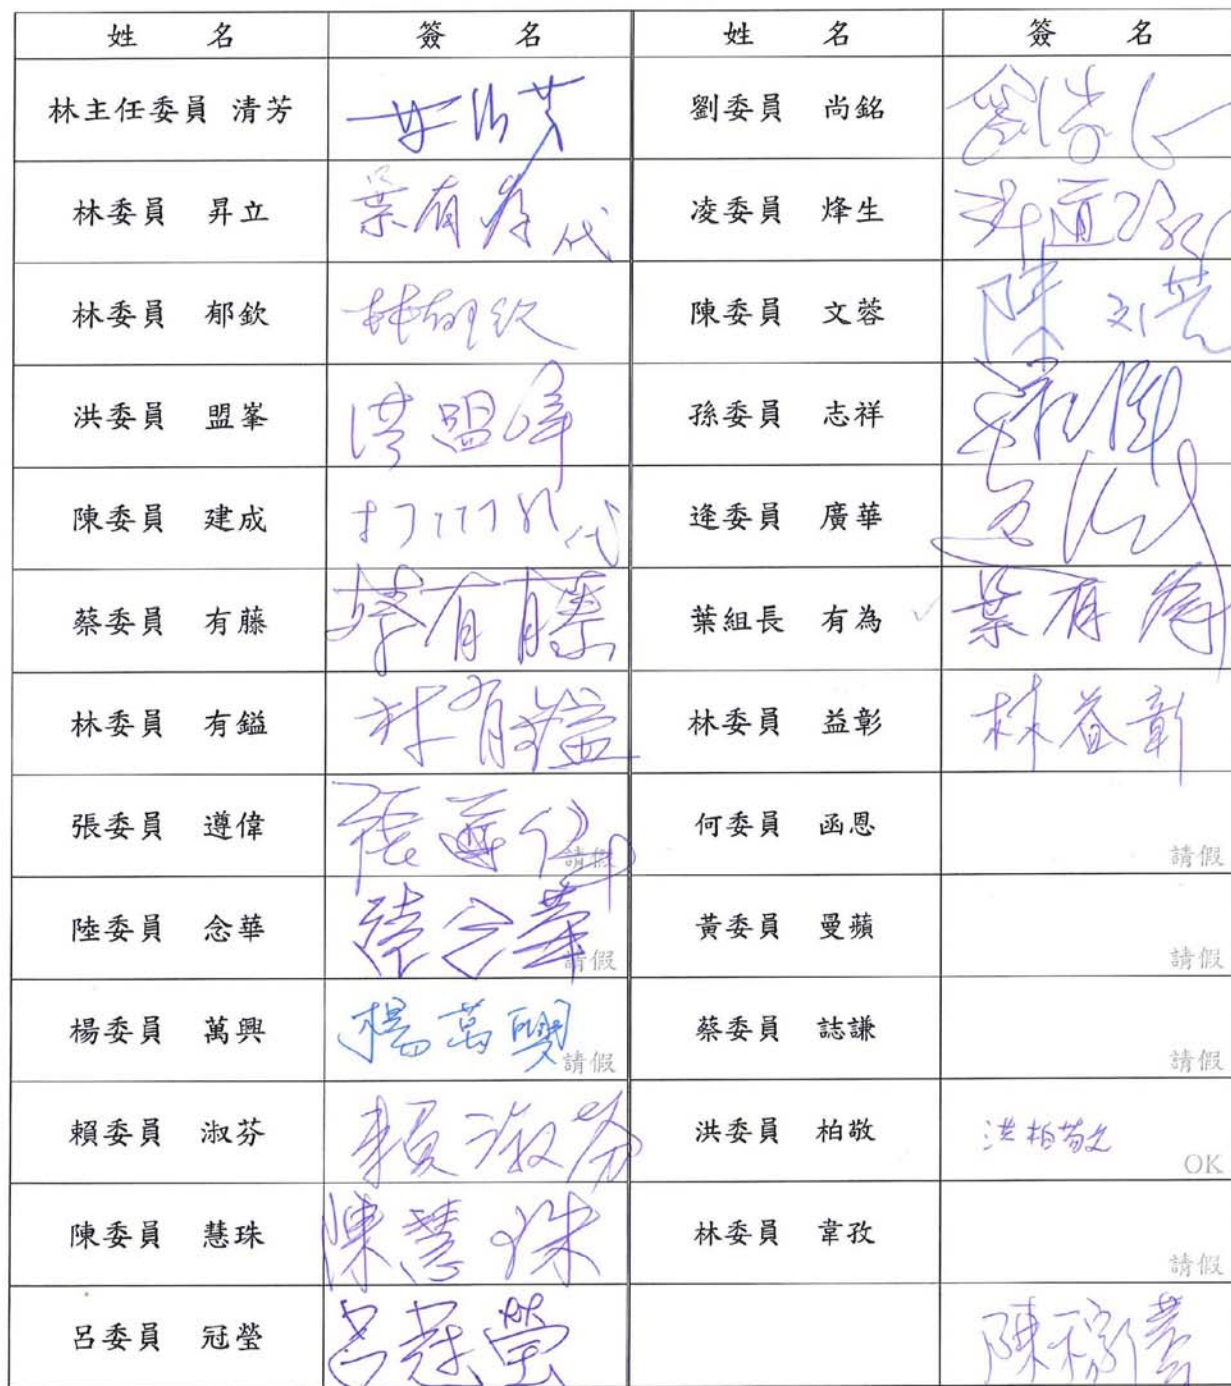 姓 名 簽 名 姓 名 簽 名
林主任委員 清芳 林清芳 劉委員 尚銘 劉尚銘
林委員 昇立 葉有為代 凌委員 烽生
林委員 郁欽 林郁欽 陳委員 文蓉 陳文蓉
洪委員 盟峯 洪盟峰 孫委員 志祥
陳委員 建成 代 逄委員 廣華
蔡委員 有藤 蔡有藤 葉組長 有為 葉有為
林委員 有鎰 林有鎰 林委員 益彰 林益彰
張委員 遵偉 張遵偉 請假 何委員 函恩 請假
陸委員 念華 陸念華 請假 黃委員 曼蘋 請假
楊委員 萬興 楊萬興 請假 蔡委員 誌謙 請假
賴委員 淑芬 賴淑芬 洪委員 柏敬 洪柏敬 OK
陳委員 慧珠 陳慧珠 林委員 韋孜 請假
呂委員 冠瑩 呂冠瑩